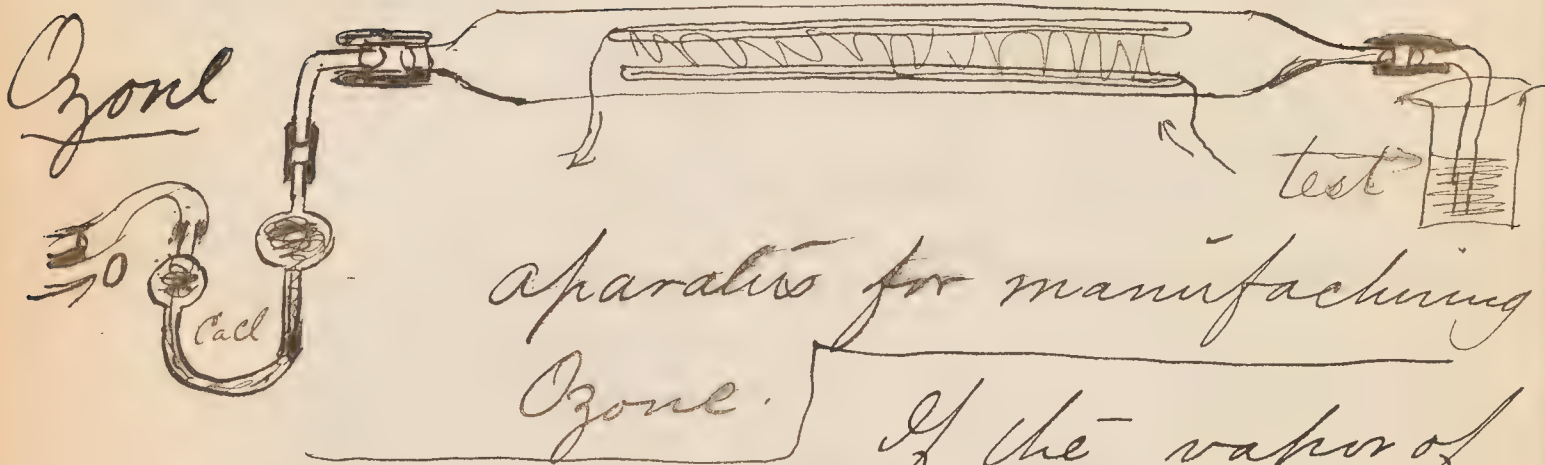 Ozone
test
O
CaCl
aparatus for manufacturing
Ozone.
If the vapor of